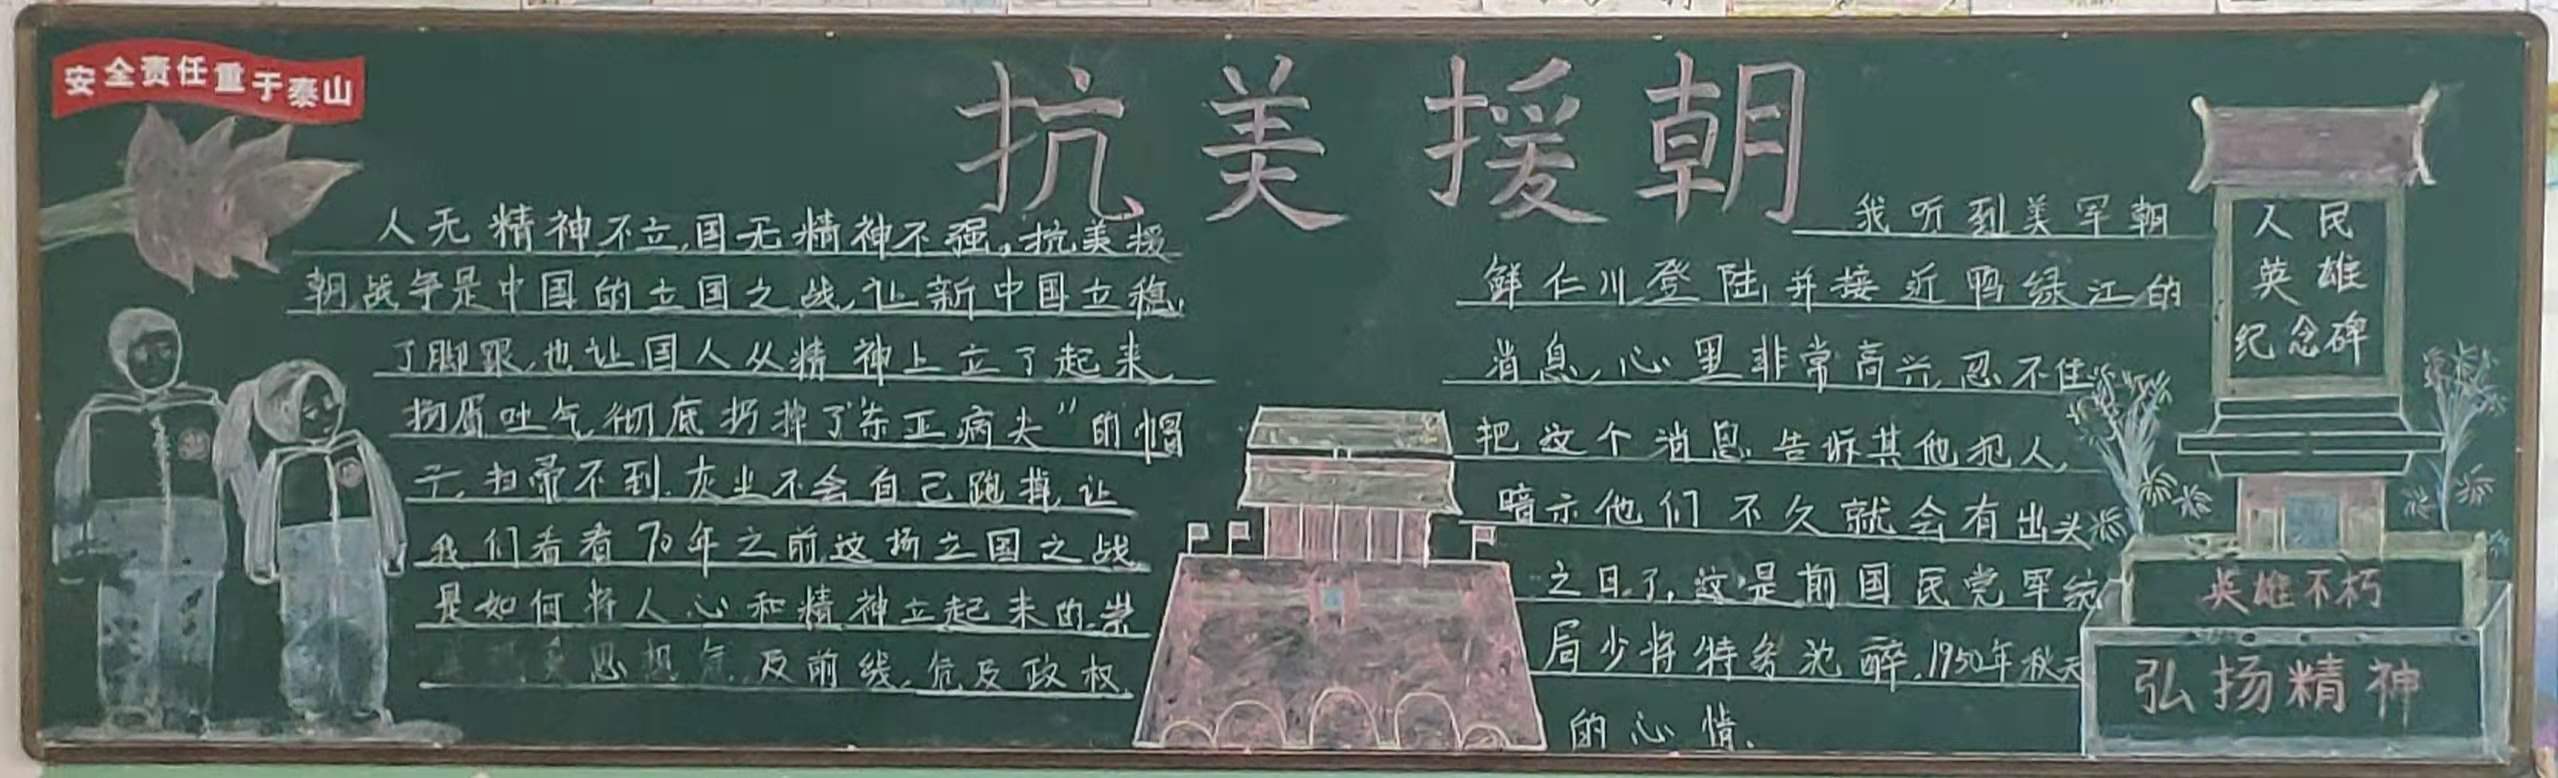 安全责任重于泰山
抗美援朝
人无精神不立,国无精神不强,抗美援
朝战争是中国的立国之战,让新中国立稳
了脚跟,也让国人从精神上立了起来,
扬眉吐气彻底扔掉了“东亚病夫”的帽
子,扫帚不到,灰尘不会自己跑掉,让
我们看看70年之前这场立国之战
是如何将人心和精神立起来的.崇
思想 及前线,危及政权,
我听到美军朝
鲜仁川登陆,并接近鸭绿江的
消息,心里非常高兴,忍不住
把这个消息告诉其他犯人,
暗示他们不久就会有出头
之日了,这是前国民党军统
局少将特务沈醉,1950年秋天
的心情.
人民
英雄
纪念碑
英雄不朽
弘扬精神